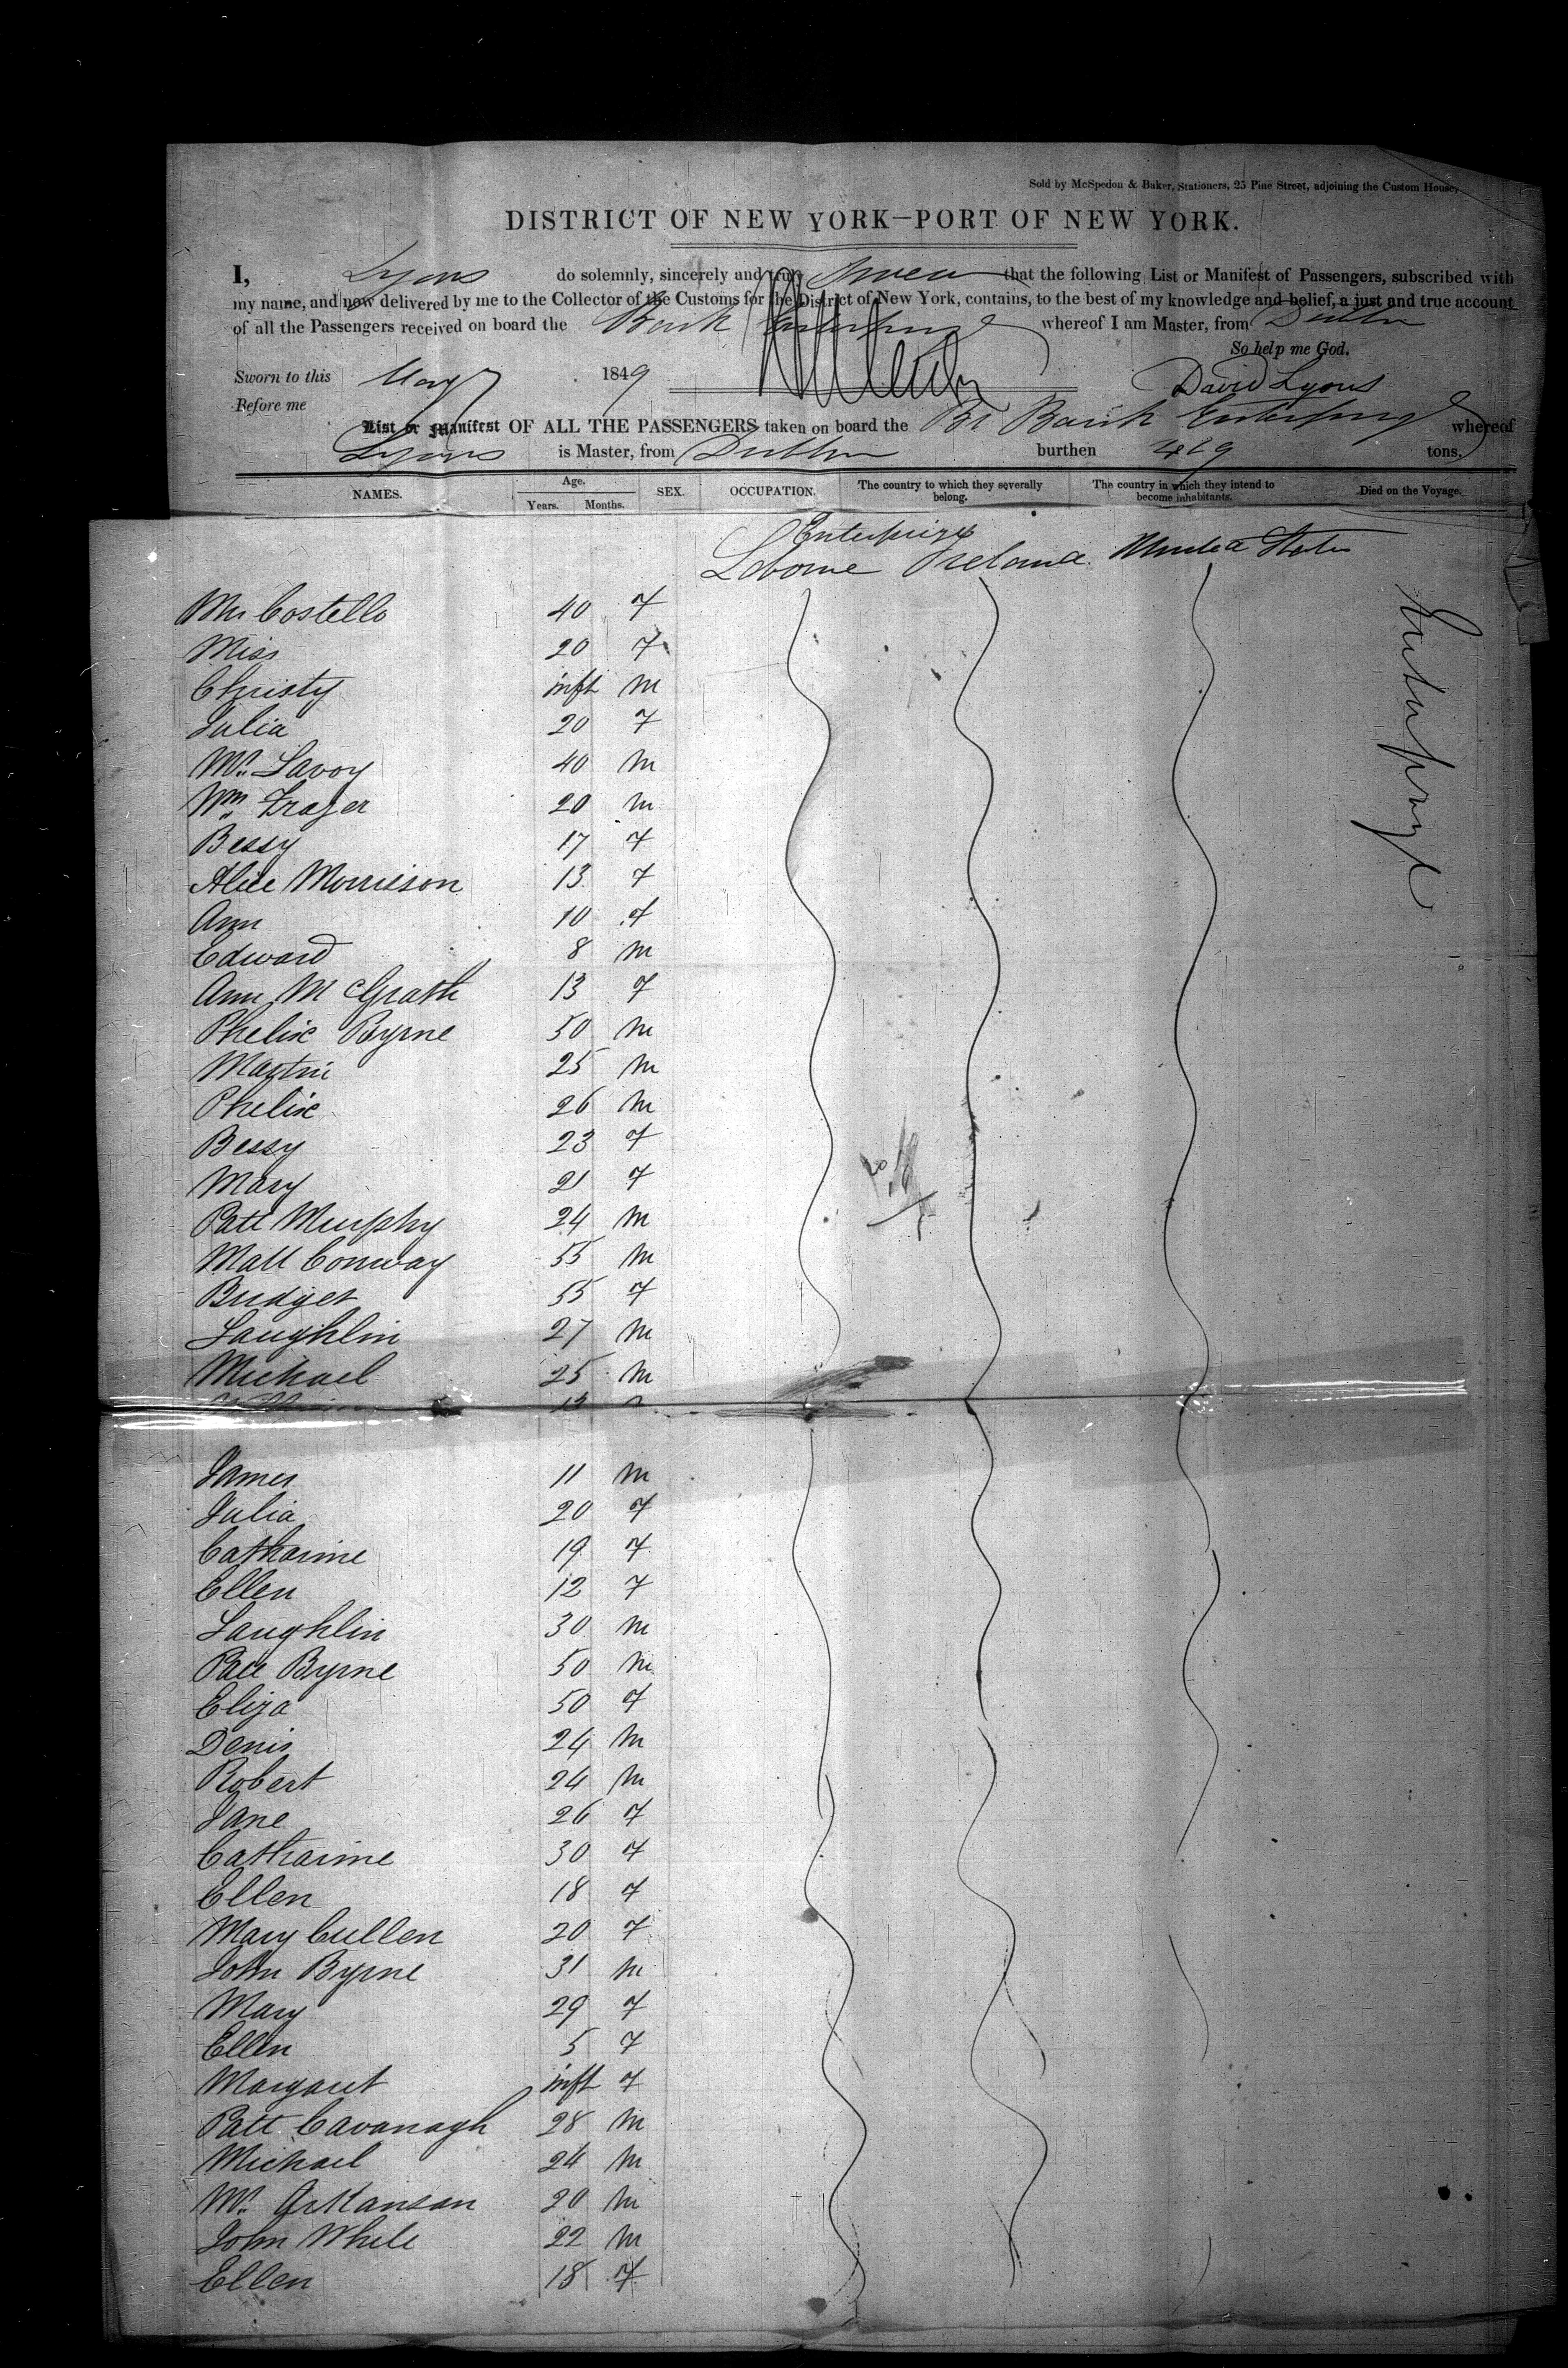 Sold by McSpedon & Baker, Stationers, 25 Pine Street, adjoining the Custom House,
DISTRICT OF NEW YORK—PORT OF NEW YORK.
I, Lyons do solemnly, sincerely and truly Swear that the following List or Manifest of Passengers, subscribed with
my name, and now delivered by me to the Collector of the Customs for the District of New York, contains, to the best of my knowledge and belief, a just and true account
of all the Passengers received on board the Bark Enterprize whereof I am Master, from Dublin
So help me God.
Sworn to this May 7 1849 David Lyons
Before me
List or Manifest OF ALL THE PASSENGERS taken on board the Br Bark Enterprize whereof
Lyons is Master, from Dublin burthen 469 tons.
NAMES. Age. Years. Months. SEX. OCCUPATION. The country to which they severally belong. The country in which they intend to become inhabitants. Died on the Voyage.
Enterprize
Ireland United States
Enterprize
Costello 40 F
Miss 20 F
Christy inft M
Julia 20 F
Mr. Savoy 40 M
Wm. Frazer 20 M
Bessy 17 F
Alice Morrison 13 F
Ann 10 F
Edward 8 M
Ann McGrath 13 F
Phelix Byrne 50 M
Martin 25 M
Phelix 26 M
Bessy 23 F
Mary 21 F
Patt Murphy 24 M
Matt Conway 55 M
Bridget 55 F
Laughlin 27 M
Michael 25 M
13 M
James 11 M
Julia 20 F
Catharine 19 F
Ellen 12 F
Laughlin 30 M
Patt Byrne 50 M
Eliza 50 F
Denis 24 M
Robert 24 M
Jane 26 F
Catharine 30 F
Ellen 18 F
Mary Cullen 20 F
John Byrne 31 M
Mary 29 F
Ellen 5 F
Margaret inft F
Patt Cavanagh 28 M
Michael 24 M
Mr. Arkanson 20 M
John White 22 M
Ellen 18 F